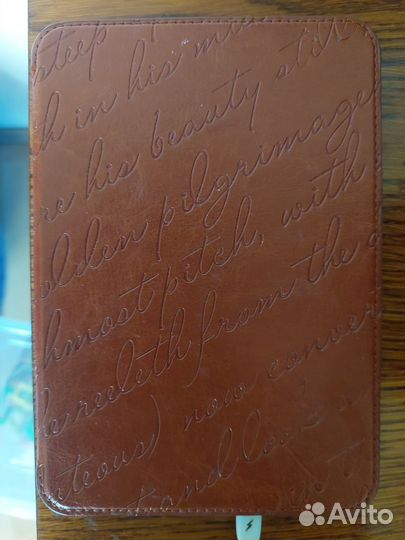 steep
th in his mid
re his beauty still
olden pilgrimage
hmost pitch, with
he reeleth from the
uteous) now conver
t and look
Avito